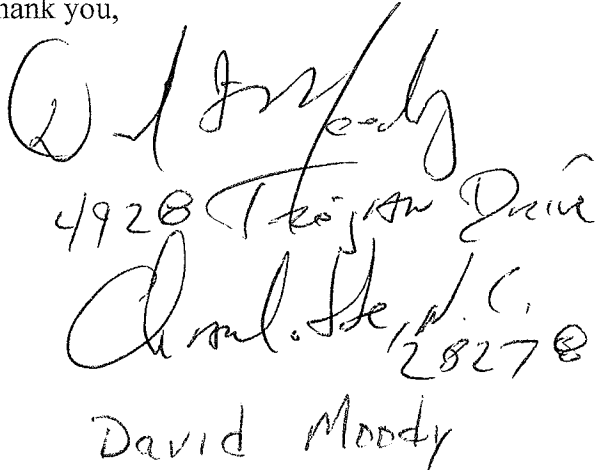 hank you,
David Moody
4928 Trojan Drive
Charlotte, N.C.
28278
David Moody